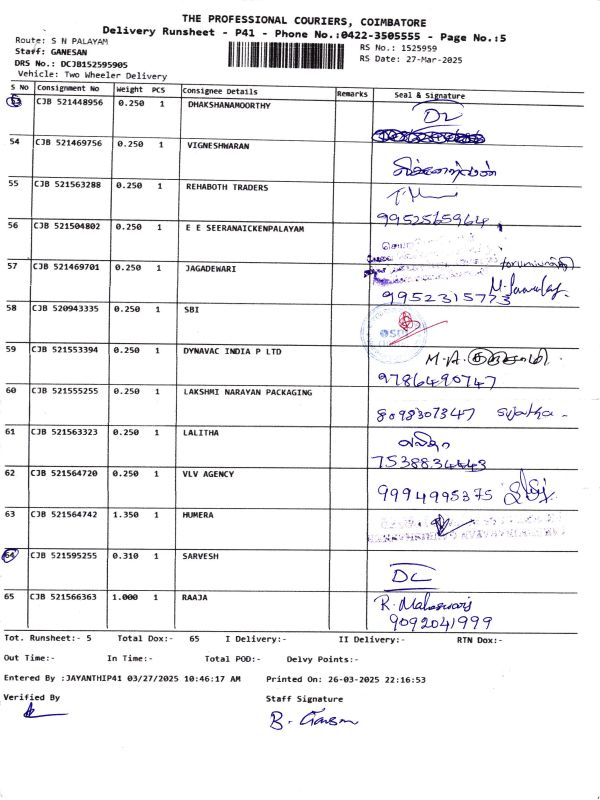 THE PROFESSIONAL COURIERS, COIMBATORE
Delivery Runsheet - P41 - Phone No.:0422-3505555 - Page No.:5
Route: S N PALAYAM
RS No.: 1525959
Staff: GANESAN
RS Date: 27-Mar-2025
DRS No.: DCJB152595905
Vehicle: Two Wheeler Delivery
S No Consignment No Weight PCS Consignee Details Remarks Seal & Signature
53 CJB 521448956 0.250 1 DHAKSHANAMOORTHY
54 CJB 521469756 0.250 1 VIGNESHWARAN
55 CJB 521563288 0.250 1 REHABOTH TRADERS
9952565964
56 CJB 521504802 0.250 1 E E SEERANAICKENPALAYAM
57 CJB 521469701 0.250 1 JAGADEWARI
9952315773
58 CJB 520943335 0.250 1 SBI
59 CJB 521553394 0.250 1 DYNAVAC INDIA P LTD
9786490747
60 CJB 521555255 0.250 1 LAKSHMI NARAYAN PACKAGING 8098307347
61 CJB 521563323 0.250 1 LALITHA
62 CJB 521564720 0.250 1 VLV AGENCY 9994995375
63 CJB 521564742 1.350 1 HUMERA
64 CJB 521595255 0.310 1 SARVESH DC
65 CJB 521566363 1.000 1 RAAJA
9092041999
Tot. Runsheet:- 5 Total Dox:- 65 I Delivery:- II Delivery:- RTN Dox:-
Out Time:- In Time:- Total POD:- Delvy Points:-
Entered By :JAYANTHIP41 03/27/2025 10:46:17 AM Printed On: 26-03-2025 22:16:53
Verified By Staff Signature